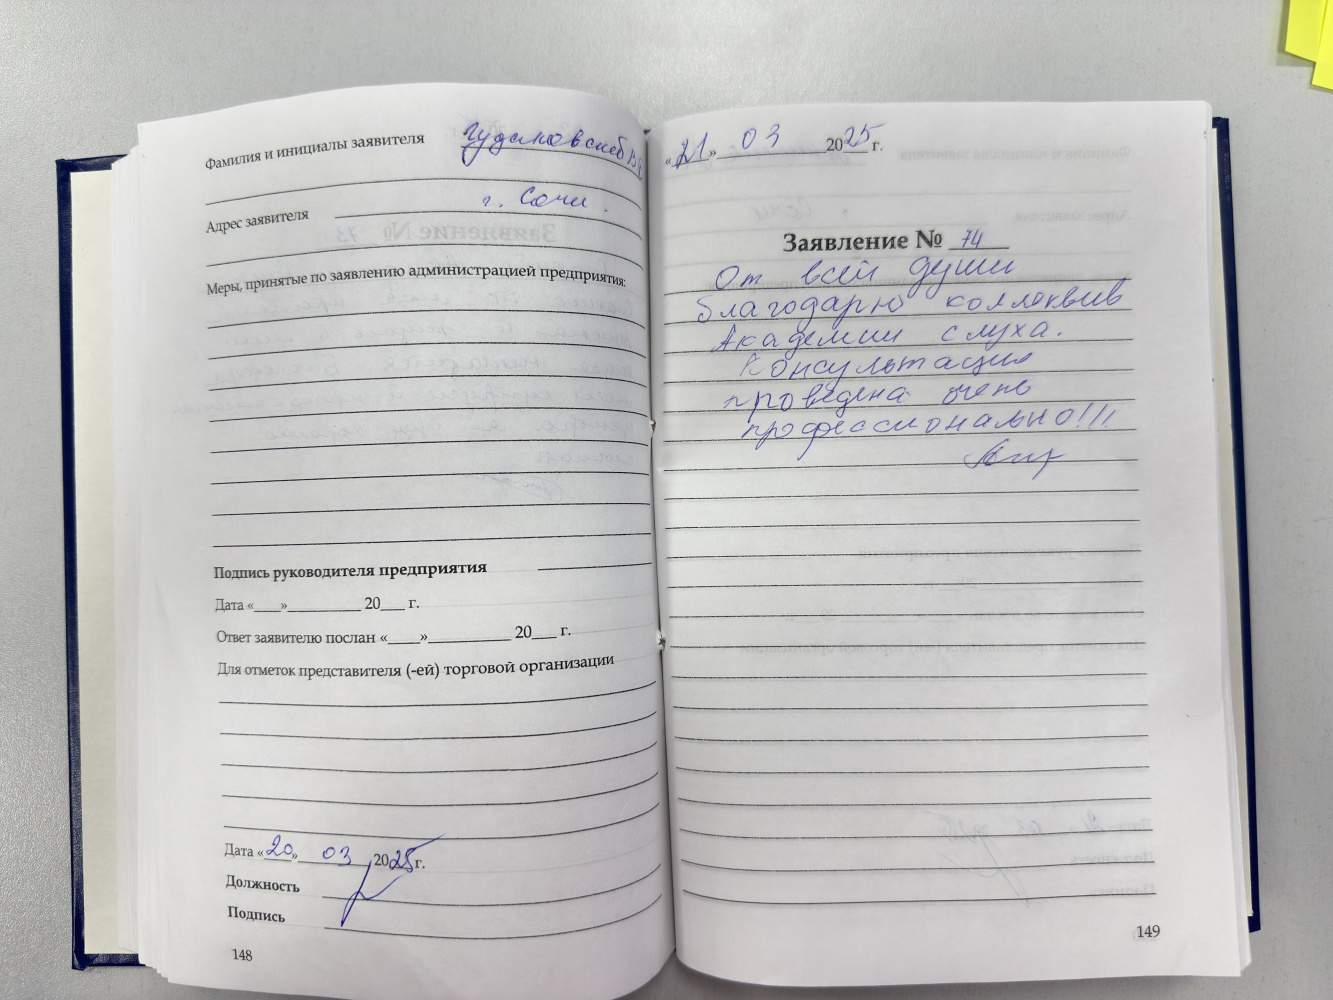 Фамилия и инициалы заявителя
Адрес заявителя г. Сочи.
Меры, принятые по заявлению администрацией предприятия:
Подпись руководителя предприятия
Дата «___»__________ 20___ г.
Ответ заявителю послан «____»___________ 20___ г.
Для отметок представителя (-ей) торговой организации
Дата «20» 03 2025 г.
Должность
Подпись
148
«21» 03 2025 г.
Заявление № 74
От всей души
благодарю коллектив
Академии слуха.
Консультация
проведена очень
профессионально!!!
149